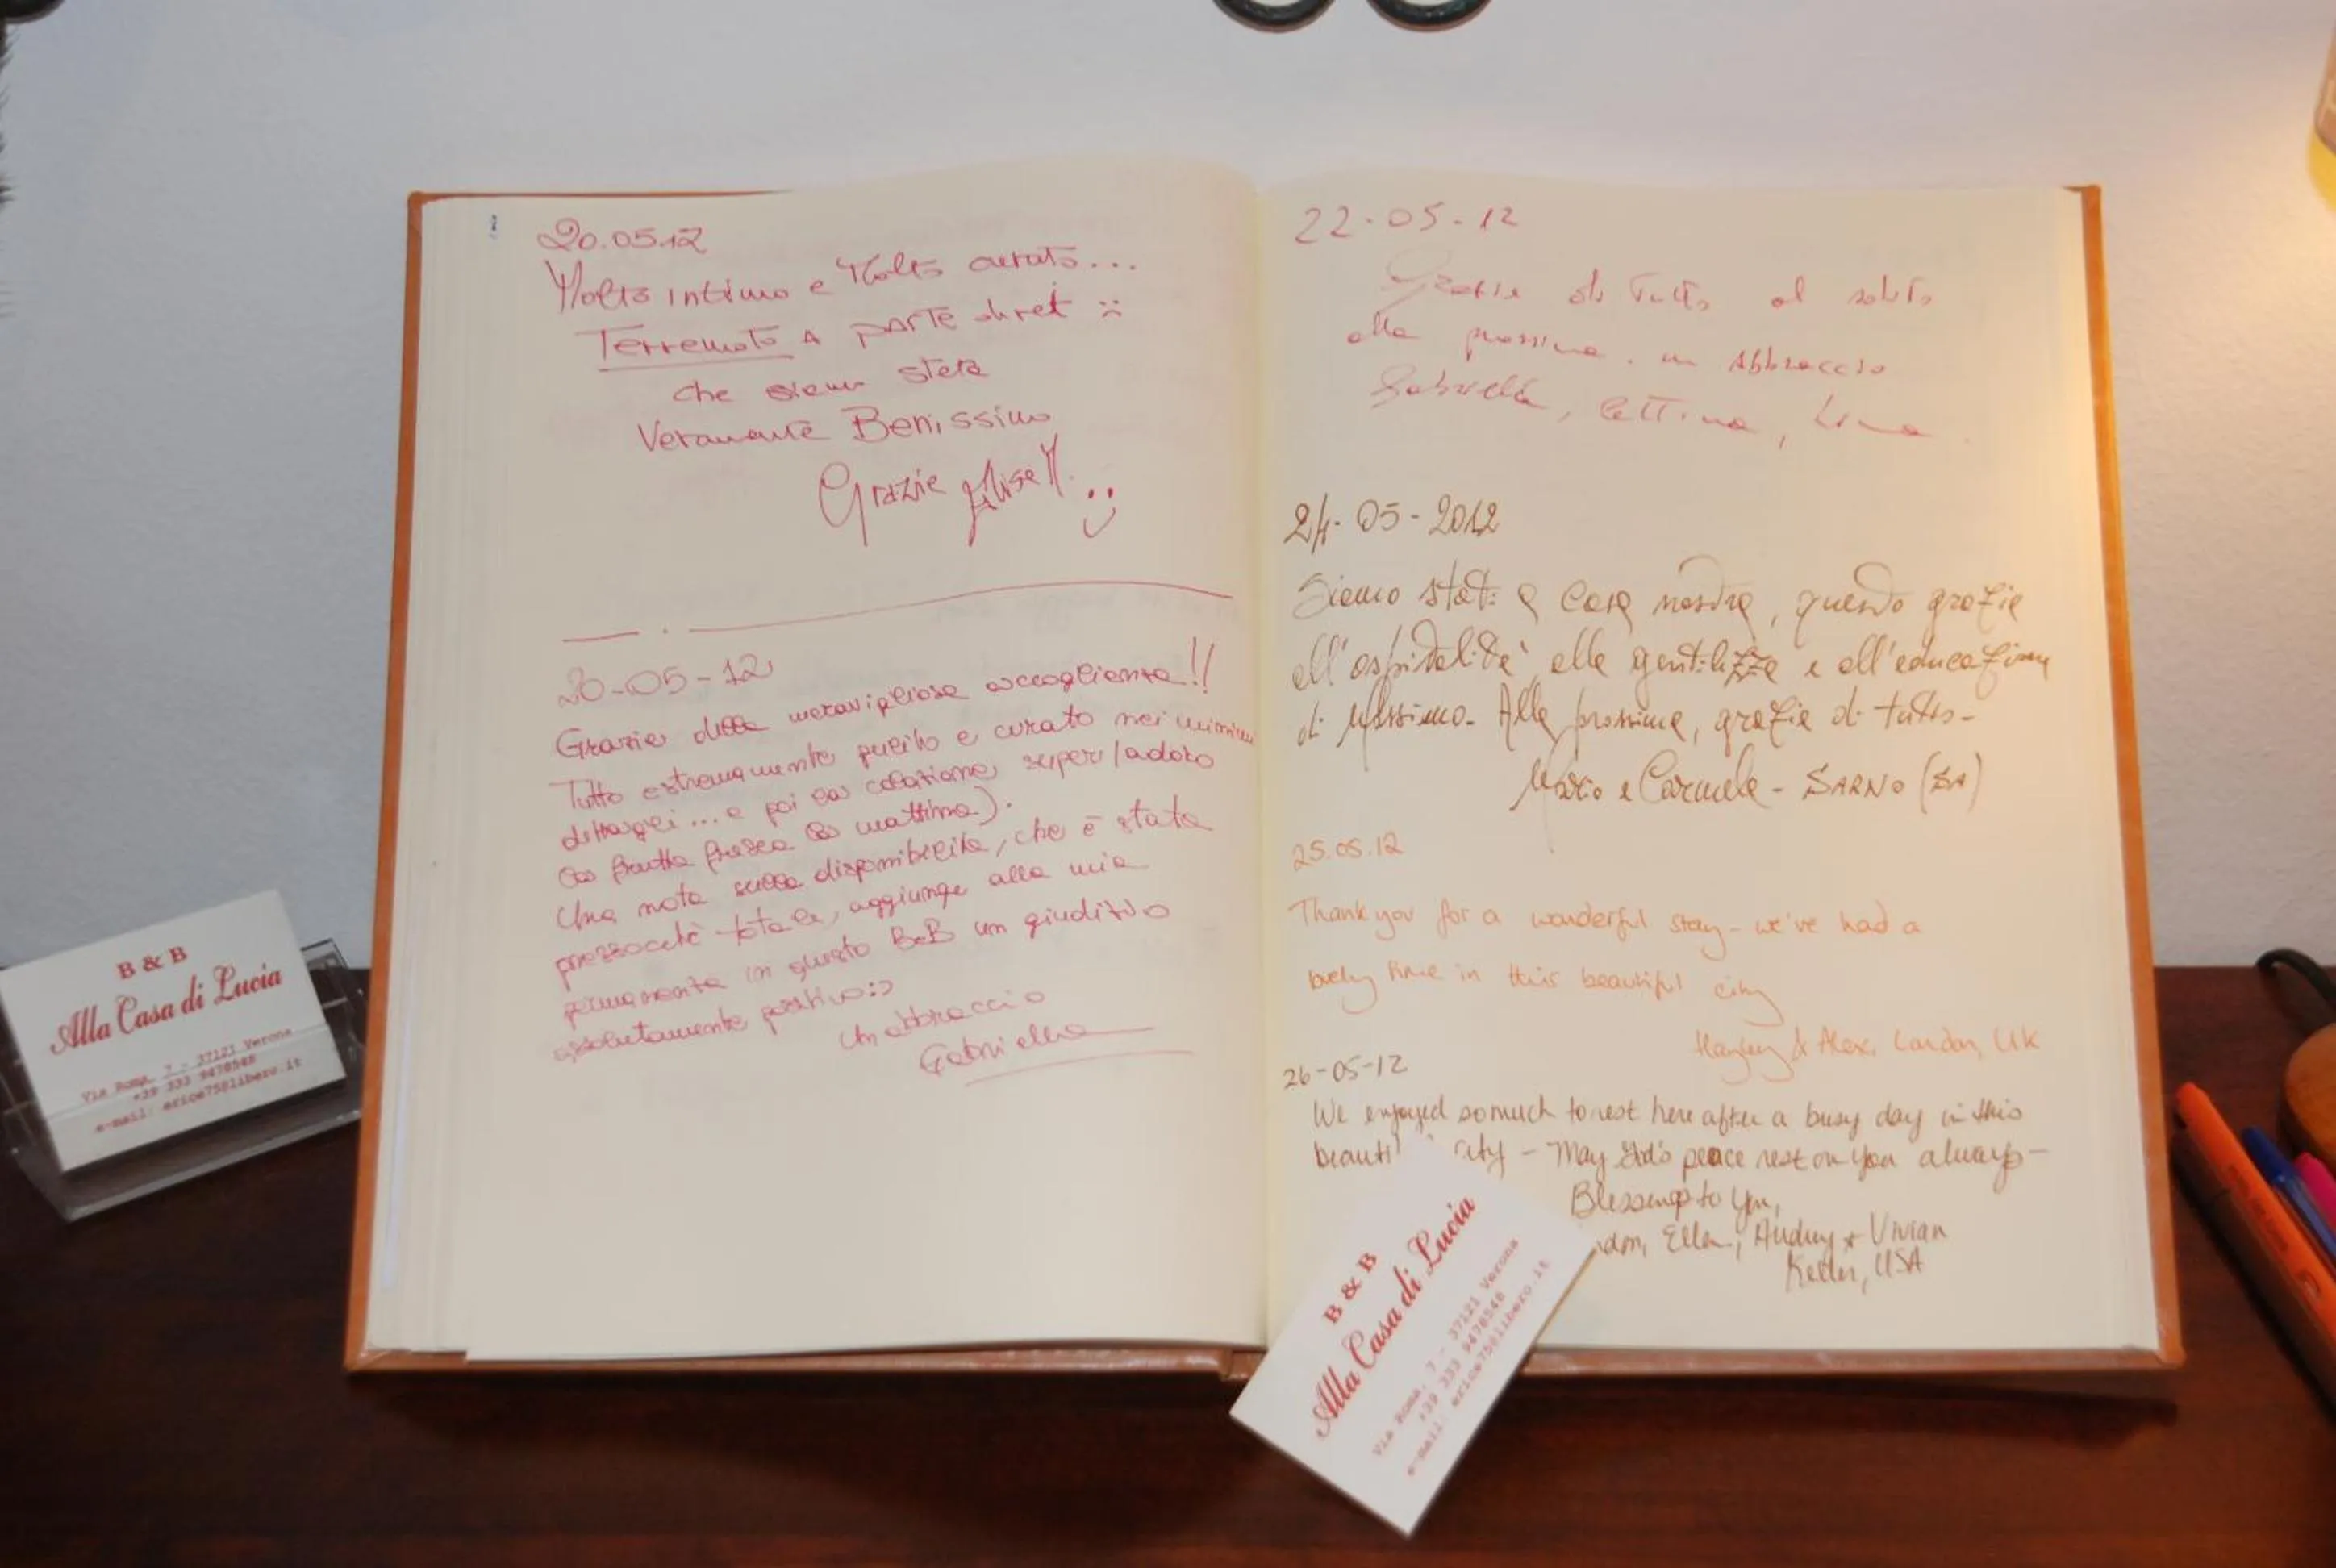 20.05.12
Molto intimo e Molto curato...
Terremoto A PARTE direi :(
che siamo state
Veramente Benissimo
Grazie
20-05-12
Grazie della meravigliosa accoglienza!!
Tutto estremamente pulito e curato nei minimi
dettagli... e poi la colazione, super (adoro
la frutta fresca la mattina).
Una nota sulla disponibilità, che è stata
pressocché totale, aggiunge alla mia
permanenza in questo B&B un giudizio
assolutamente positivo :)
Un abbraccio
Gabriella
22-05-12
Grazie di tutto al solito
alla prossima. un Abbraccio
Gabriella, Lettina, Lina
24-05-2012
Siamo stati a casa nostra, quando grazie
all'ospitalità, alla gentilezza e all'educazione
di Massimo. Alla prossima, grazie di tutto-
Mario e Carmela - SARNO (SA)
25.05.12
Thank you for a wonderful stay - we've had a
lovely time in this beautiful city
Hayley & Alex, London, UK
26-05-12
We enjoyed so much to rest here after a busy day in this
beauti city - May God's peace rest on you always -
Blessings to you,
Ellen, Audrey + Vivian
Keller, USA
B & B
Alla Casa di Lucia
Via Roma, 7 - 37121 Verona
+39 333 9470548
e-mail: erice75@libero.it
B & B
Alla Casa di Lucia
Via Roma, 7 - 37121 Verona
+39 333 9470548
e-mail: erice75@libero.it